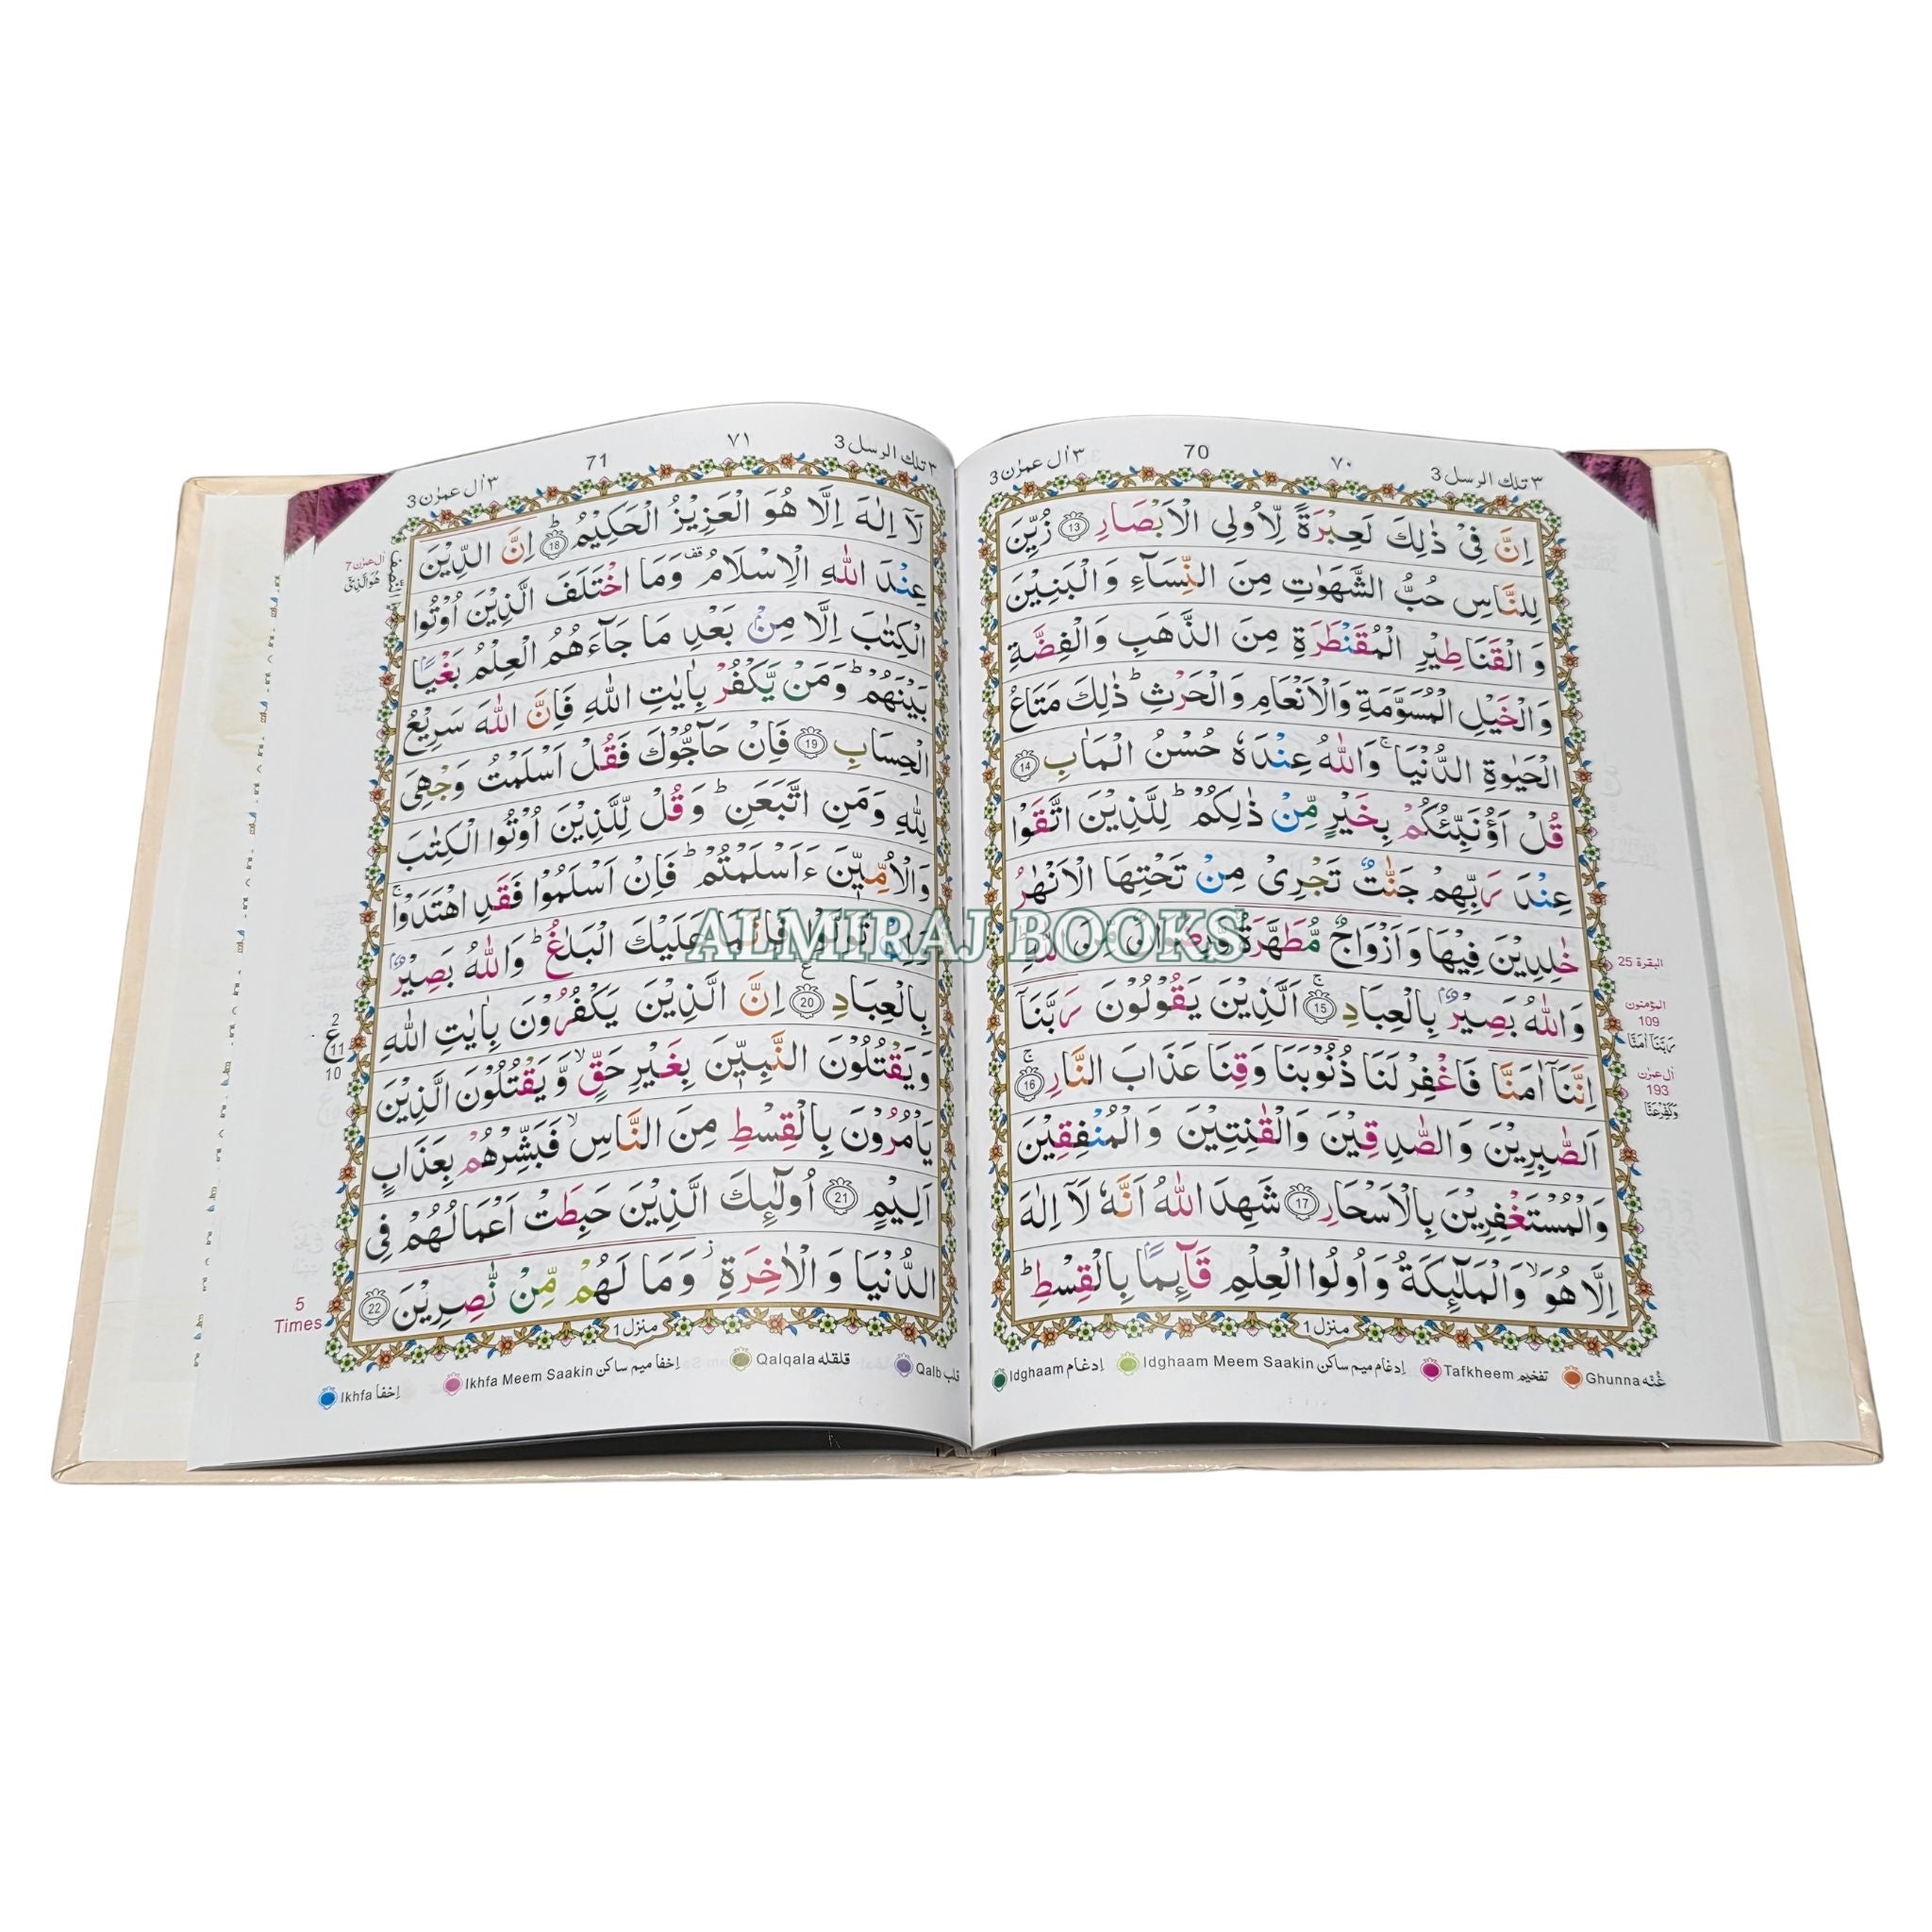 ٣ تلك الرسل 3
٧٠
70
٣ اٰل عمرٰن 3
اِنَّ فِىْ ذٰلِكَ لَعِبْرَةً لِّاُولِى الْاَبْصَارِ 13 زُيِّنَ
لِلنَّاسِ حُبُّ الشَّهَوٰتِ مِنَ النِّسَآءِ وَالْبَنِيْنَ
وَالْقَنَاطِيْرِ الْمُقَنْطَرَةِ مِنَ الذَّهَبِ وَالْفِضَّةِ
وَالْخَيْلِ الْمُسَوَّمَةِ وَالْاَنْعَامِ وَالْحَرْثِ ؕ ذٰلِكَ مَتَاعُ
الْحَيٰوةِ الدُّنْيَا ۚ وَاللّٰهُ عِنْدَهٗ حُسْنُ الْمَاٰبِ 14
قُلْ اَؤُنَبِّئُكُمْ بِخَيْرٍ مِّنْ ذٰلِكُمْ ؕ لِلَّذِيْنَ اتَّقَوْا
عِنْدَ رَبِّهِمْ جَنّٰتٌ تَجْرِىْ مِنْ تَحْتِهَا الْاَنْهٰرُ
خٰلِدِيْنَ فِيْهَا وَاَزْوَاجٌ مُّطَهَّرَةٌ وَّرِضْوَانٌ مِّنَ اللّٰهِ ؕ
وَاللّٰهُ بَصِيْرٌۢ بِالْعِبَادِ ۚ 15 اَلَّذِيْنَ يَقُوْلُوْنَ رَبَّنَآ
اِنَّنَآ اٰمَنَّا فَاغْفِرْ لَنَا ذُنُوْبَنَا وَقِنَا عَذَابَ النَّارِ ۚ 16
اَلصّٰبِرِيْنَ وَالصّٰدِقِيْنَ وَالْقٰنِتِيْنَ وَالْمُنْفِقِيْنَ
وَالْمُسْتَغْفِرِيْنَ بِالْاَسْحَارِ 17 شَهِدَ اللّٰهُ اَنَّهٗ لَآ اِلٰهَ
اِلَّا هُوَ ۙ وَالْمَلٰٓئِكَةُ وَاُولُوا الْعِلْمِ قَآئِمًاۢ بِالْقِسْطِ ؕ
منزل 1
البقرة 25
المؤمنون
109
رَبَّنَآ اٰمَنَّا
اٰل عمرٰن
193
وَكَفِّرْ عَنَّا
Idghaam اِدغام
Idghaam Meem Saakin اِدغام ميم ساكن
Tafkheem تفخيم
Ghunna غُنّه
٣ تلك الرسل 3
٧١
71
٣ اٰل عمرٰن 3
لَآ اِلٰهَ اِلَّا هُوَ الْعَزِيْزُ الْحَكِيْمُ ؕ 18 اِنَّ الدِّيْنَ
عِنْدَ اللّٰهِ الْاِسْلَامُ قف وَمَا اخْتَلَفَ الَّذِيْنَ اُوْتُوا
الْكِتٰبَ اِلَّا مِنْۢ بَعْدِ مَا جَآءَهُمُ الْعِلْمُ بَغْيًاۢ
بَيْنَهُمْ ؕ وَمَنْ يَّكْفُرْ بِاٰيٰتِ اللّٰهِ فَاِنَّ اللّٰهَ سَرِيْعُ
الْحِسَابِ 19 فَاِنْ حَآجُّوْكَ فَقُلْ اَسْلَمْتُ وَجْهِىَ
لِلّٰهِ وَمَنِ اتَّبَعَنِ ؕ وَقُلْ لِّلَّذِيْنَ اُوْتُوا الْكِتٰبَ
وَالْاُمِّيّٖنَ ءَاَسْلَمْتُمْ ؕ فَاِنْ اَسْلَمُوْا فَقَدِ اهْتَدَوْا ۚ
وَاِنْ تَوَلَّوْا فَاِنَّمَا عَلَيْكَ الْبَلٰغُ ؕ وَاللّٰهُ بَصِيْرٌۢ
بِالْعِبَادِ 20 اِنَّ الَّذِيْنَ يَكْفُرُوْنَ بِاٰيٰتِ اللّٰهِ
وَيَقْتُلُوْنَ النَّبِيّٖنَ بِغَيْرِ حَقٍّ ۙ وَّيَقْتُلُوْنَ الَّذِيْنَ
يَاْمُرُوْنَ بِالْقِسْطِ مِنَ النَّاسِ ۙ فَبَشِّرْهُمْ بِعَذَابٍ
اَلِيْمٍ 21 اُولٰٓئِكَ الَّذِيْنَ حَبِطَتْ اَعْمَالُهُمْ فِى
الدُّنْيَا وَالْاٰخِرَةِ ۡ وَمَا لَهُمْ مِّنْ نّٰصِرِيْنَ 22
منزل 1
اٰل عمرٰن 7
هُوَ الَّذِىْ
2
ع
11
10
5
Times
Ikhfa اِخفا
Ikhfa Meem Saakin اِخفا ميم ساكن
Qalqala قلقله
Qalb قلب
ALMIRAJ BOOKS